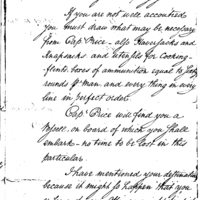 If you are not well accoutred
you must draw what may be necessary
from Cap. Price - also Haversacks and
Knapsacks and utensils for Cooking -
flints, boxes of ammunition equal to
rounds p man and every thing in every
line in perfect order.
Cap. Price will find you a
Vessel, on board of which you shall
embark - no time to be lost in this
particular.
I have mentioned your destination
because it might so happen that you